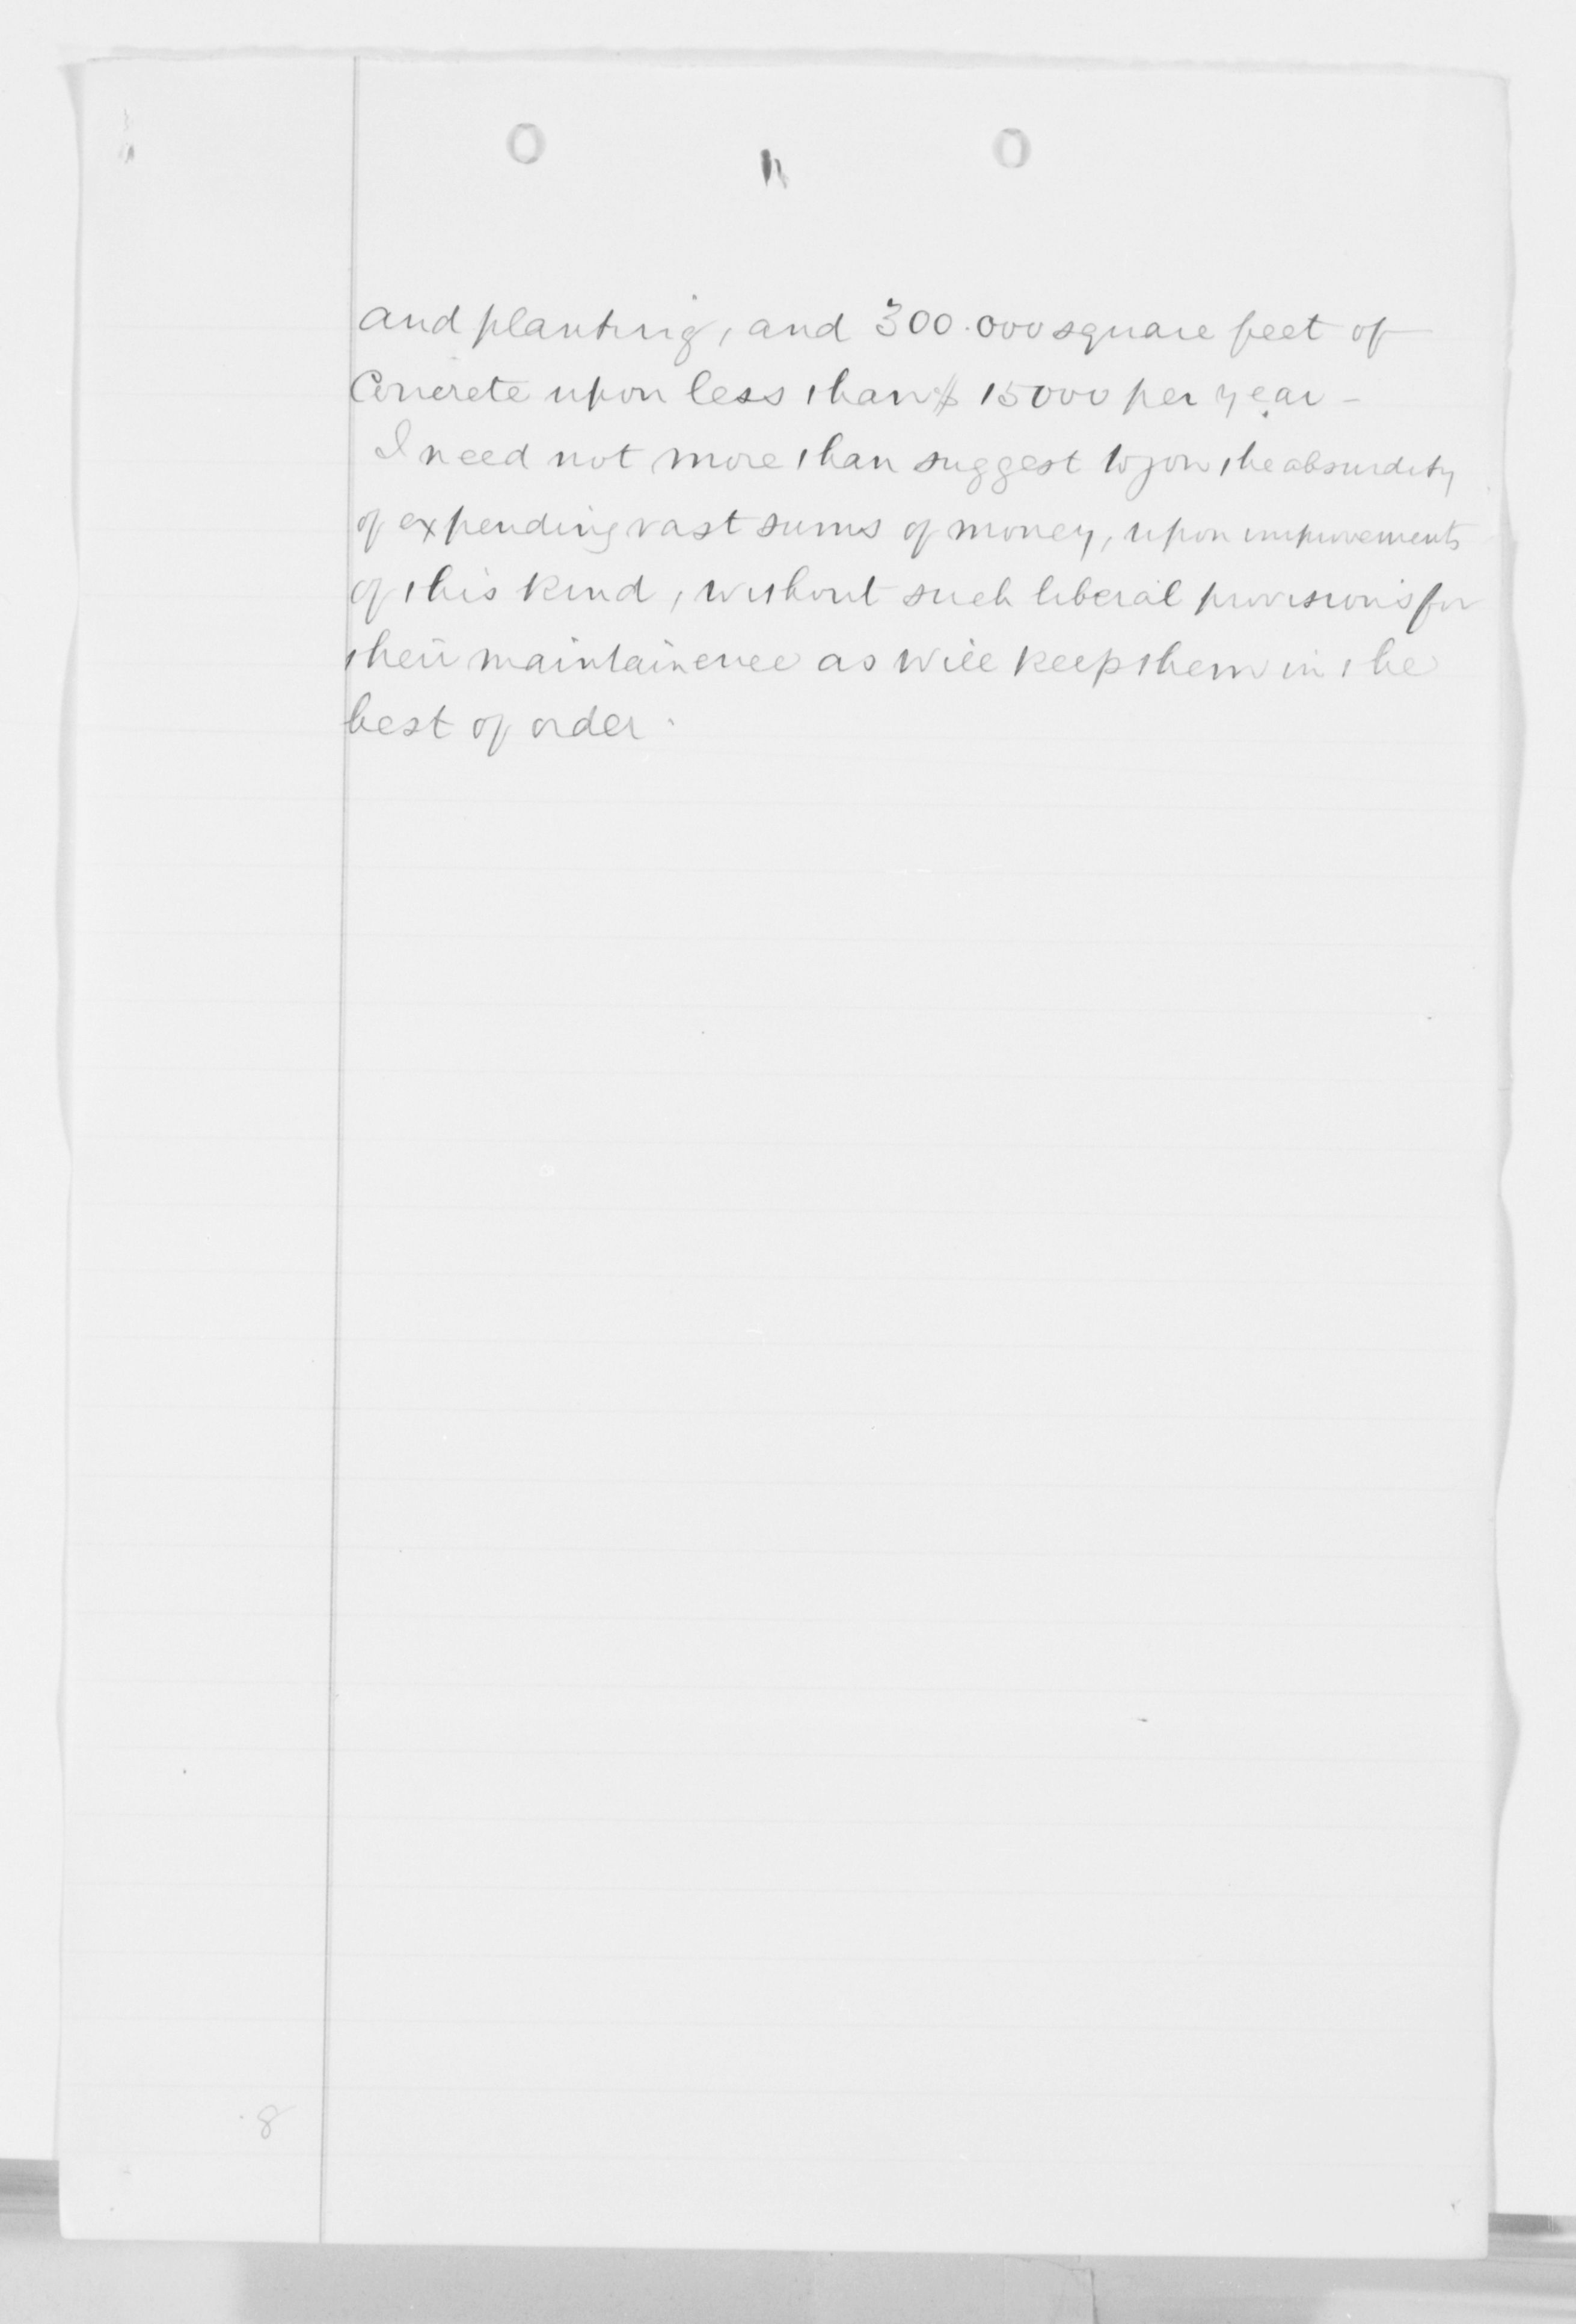 and planting, and 300.000 square feet of
Concrete upon less than $ 15000 per year -
I need not more than suggest to you the absurdity
of expending vast sums of money, upon improvements
of this kind, without such liberal provisions for
their maintainence as will keep them in the
best of order.
8